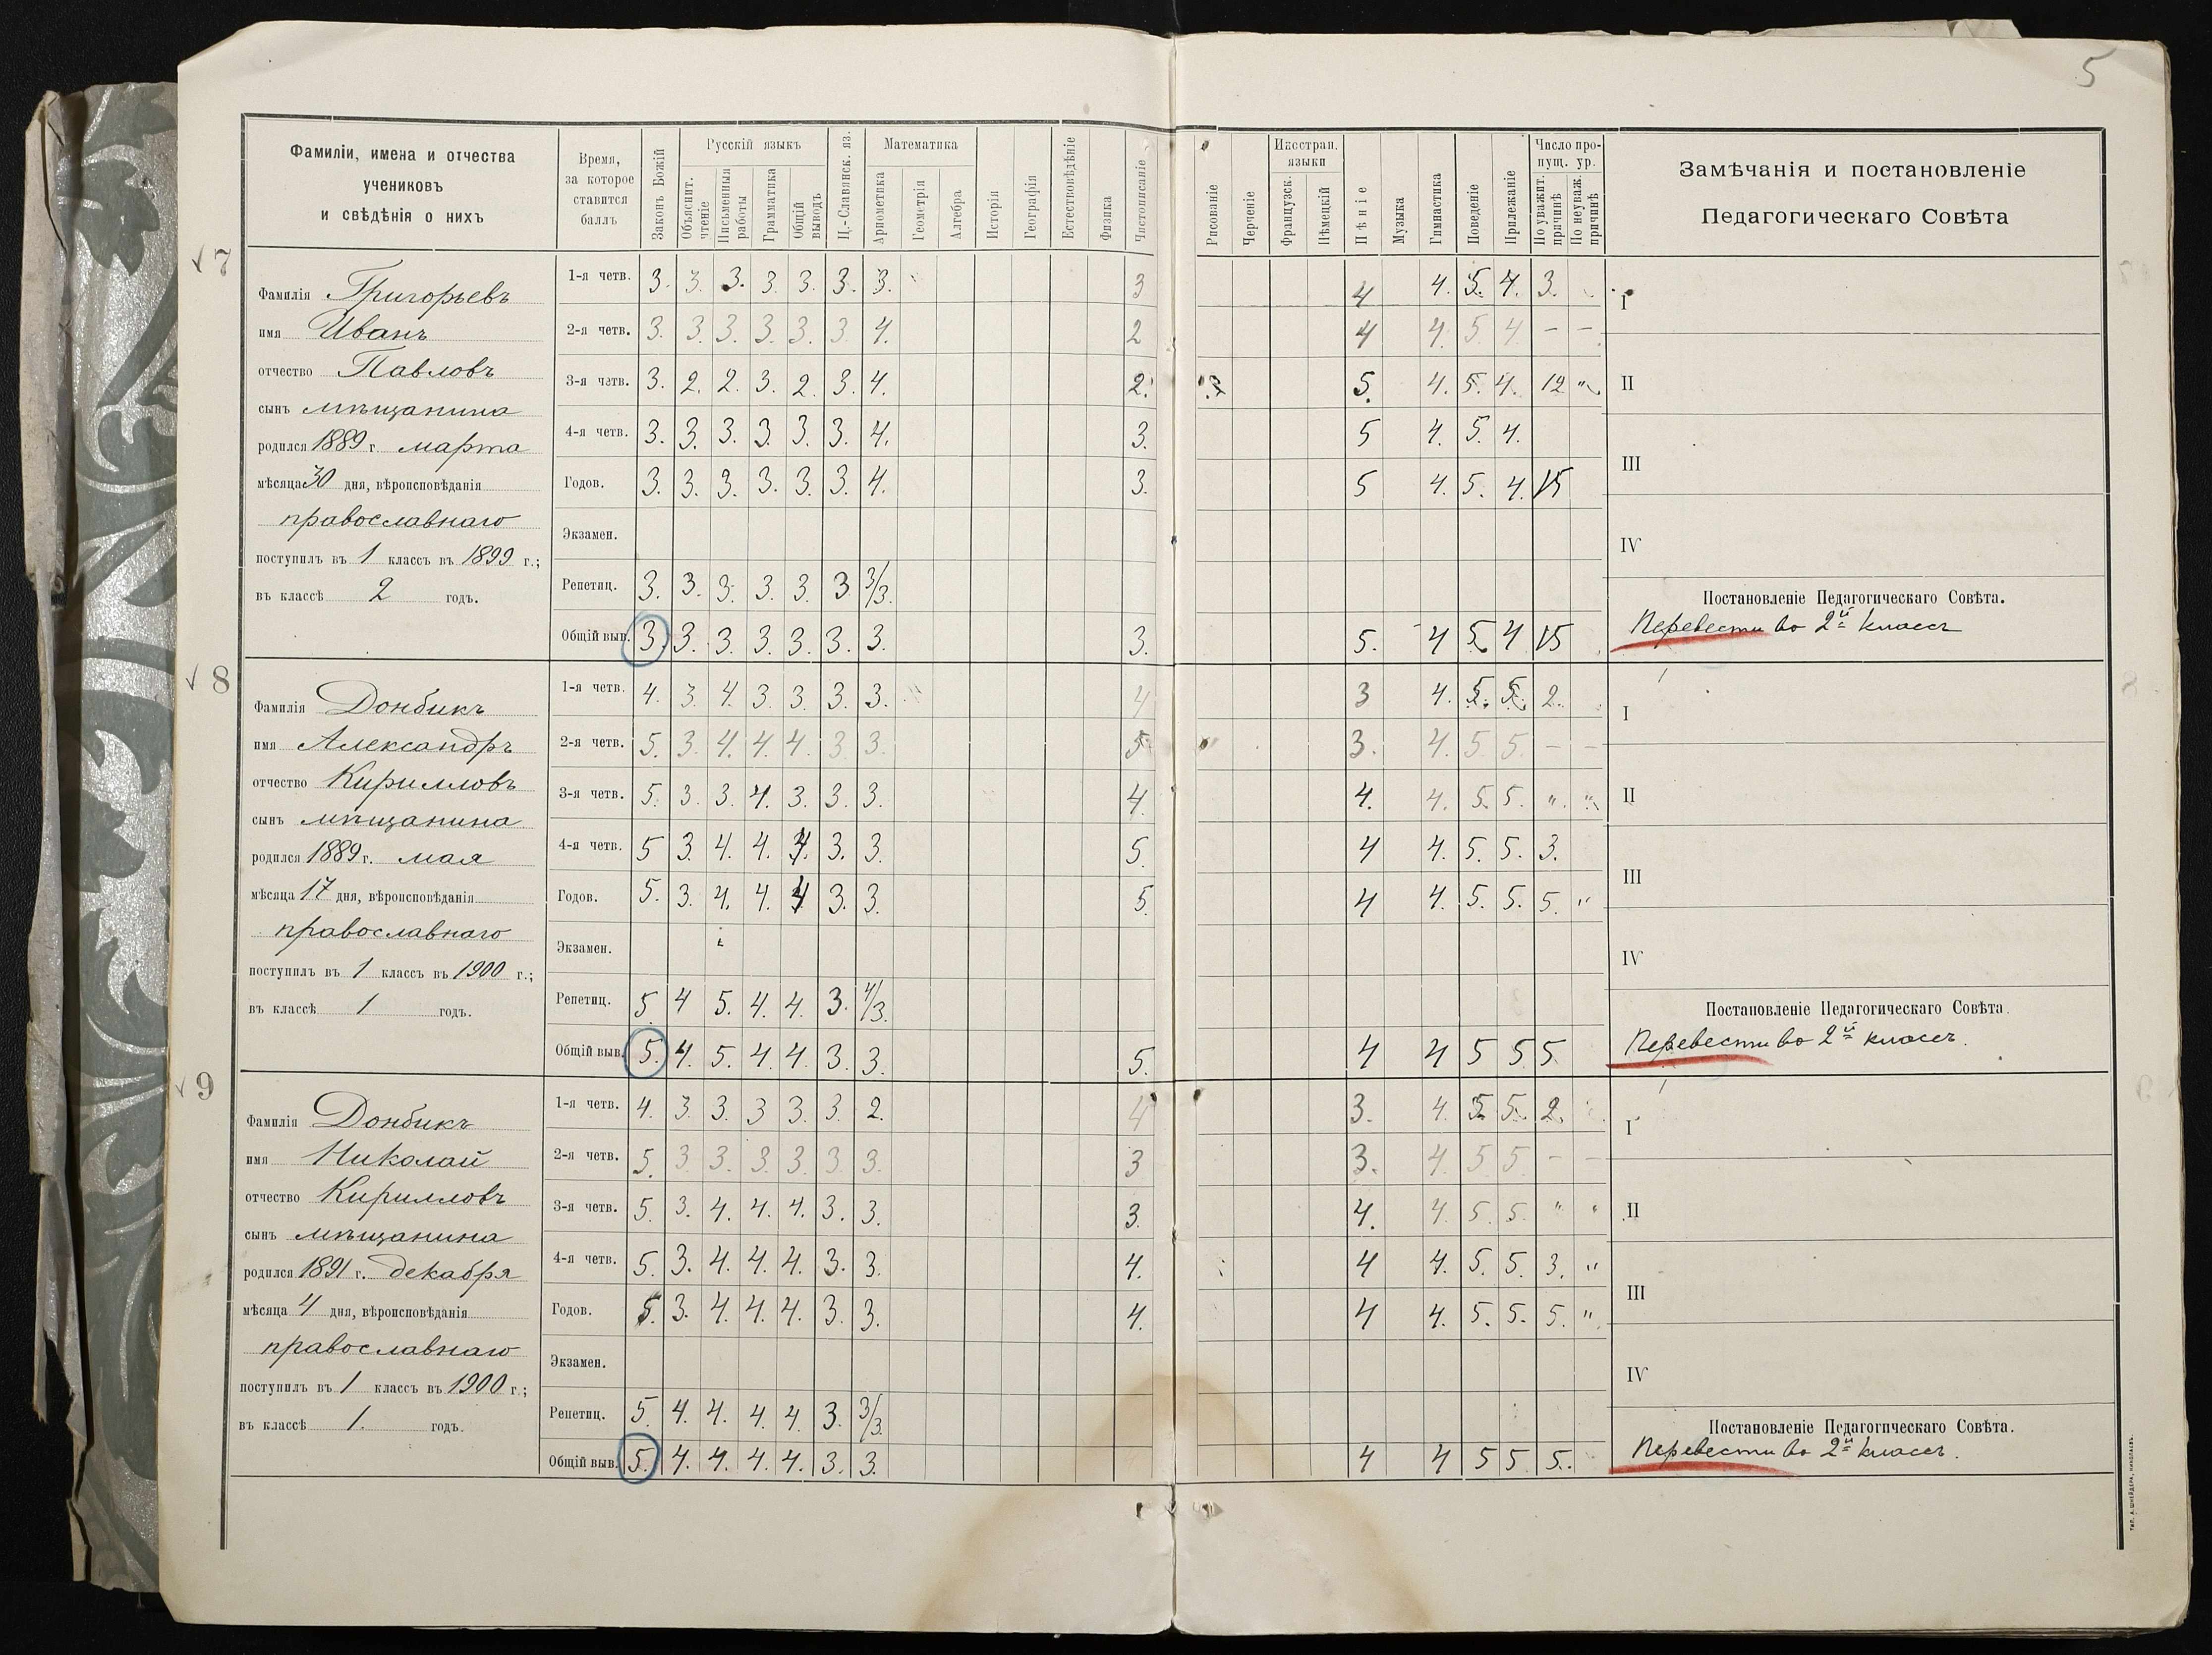 5
Фамиліи, имена и отчества
учениковъ
и свѣдѣнія о нихъ
Время,
за которое
ставится
баллъ
Законъ Божій
Русскій языкъ
Объяснит.
чтеніе
Письменныя
работы
Грамматика
Общій
выводъ
Ц.-Славянск. яз.
Математика
Ариѳметика
Геометрія
Алгебра
Исторія
Географія
Естествовѣдѣніе
Физика
Чистописаніе
Рисованіе
Черченіе
Иностран.
языки
Французск.
Нѣмецкій
Пѣніе
Музыка
Гимнастика
Поведеніе
Прилежаніе
Число про-
пущ. ур.
По уважит.
причинѣ
По неуваж.
причинѣ
Замѣчанія и постановленіе
Педагогическаго Совѣта
7
Фамилія Григорьевъ
имя Иванъ
отчество Павловъ
сынъ мѣщанина
родился 1889 г. марта
мѣсяца 30 дня, вѣроисповѣданія
православнаго
поступилъ въ 1 классъ въ 1899 г.;
въ классѣ 2 годъ.
1-я четв. 3. 3. 3. 3. 3. 3. 3. 3 4 4. 5. 4. 3.
2-я четв. 3. 3. 3. 3. 3. 3 4. 2 4 4. 5 4 — —
3-я четв. 3. 2. 2. 3. 2. 3. 4. 2. 5. 4. 5. 4. 12 "
4-я четв. 3. 3. 3. 3. 3. 3. 4. 3. 5 4. 5. 4.
Годов. 3. 3. 3. 3. 3. 3. 4. 3. 5 4. 5. 4. 15
Экзамен.
Репетиц. 3. 3. 3. 3. 3. 3 3/3.
Общій выв. 3. 3. 3. 3. 3. 3. 3. 3. 5. 4 5. 4 15
I
II
III
IV
Постановленіе Педагогическаго Совѣта.
Перевести во 2й классъ
8
Фамилія Донбикъ
имя Александръ
отчество Кирилловъ
сынъ мѣщанина
родился 1889 г. мая
мѣсяца 17 дня, вѣроисповѣданія
православнаго
поступилъ въ 1 классъ въ 1900 г.;
въ классѣ 1 годъ.
1-я четв. 4. 3. 4. 3 3. 3. 3. 4 3 4. 5. 5. 2.
2-я четв. 5. 3. 4. 4. 4. 3 3. 5 3. 4. 5 5. — —
3-я четв. 5. 3. 3. 4. 3. 3. 3. 4. 4. 4. 5. 5. " "
4-я четв. 5 3. 4. 4. 4. 3. 3. 5. 4 4. 5. 5. 3.
Годов. 5. 3. 4. 4. 4 3. 3. 5. 4 4. 5. 5. 5. "
Экзамен.
Репетиц. 5 4 5. 4. 4. 3. 4/3.
Общій выв. 5. 4. 5. 4 4. 3. 3. 5. 4 4 5 5 5.
I
II
III
IV
Постановленіе Педагогическаго Совѣта.
Перевести во 2й классъ.
9
Фамилія Донбикъ
имя Николай
отчество Кирилловъ
сынъ мѣщанина
родился 1891 г. декабря
мѣсяца 4 дня, вѣроисповѣданія
православнаго
поступилъ въ 1 классъ въ 1900 г.;
въ классѣ 1. годъ.
1-я четв. 4. 3. 3. 3 3. 3. 2. 4 3. 4. 5 5. 2.
2-я четв. 5. 3. 3. 3. 3. 3. 3. 3 3. 4. 5 5 — —
3-я четв. 5. 3. 4. 4. 4. 3. 3. 3. 4. 4. 5. 5. " "
4-я четв. 5. 3. 4. 4. 4. 3. 3. 4. 4 4. 5. 5. 3. "
Годов. 5. 3. 4. 4. 4. 3. 3. 4. 4 4. 5. 5. 5. "
Экзамен.
Репетиц. 5. 4. 4. 4. 4. 3. 3/3.
Общій выв. 5. 4. 4. 4. 4. 3. 3. 4 4 5 5 5.
I
II
III
IV
Постановленіе Педагогическаго Совѣта.
Перевести во 2й классъ.
ТИП. А. ШНЕЙДЕРА, НИКОЛАЕВЪ.